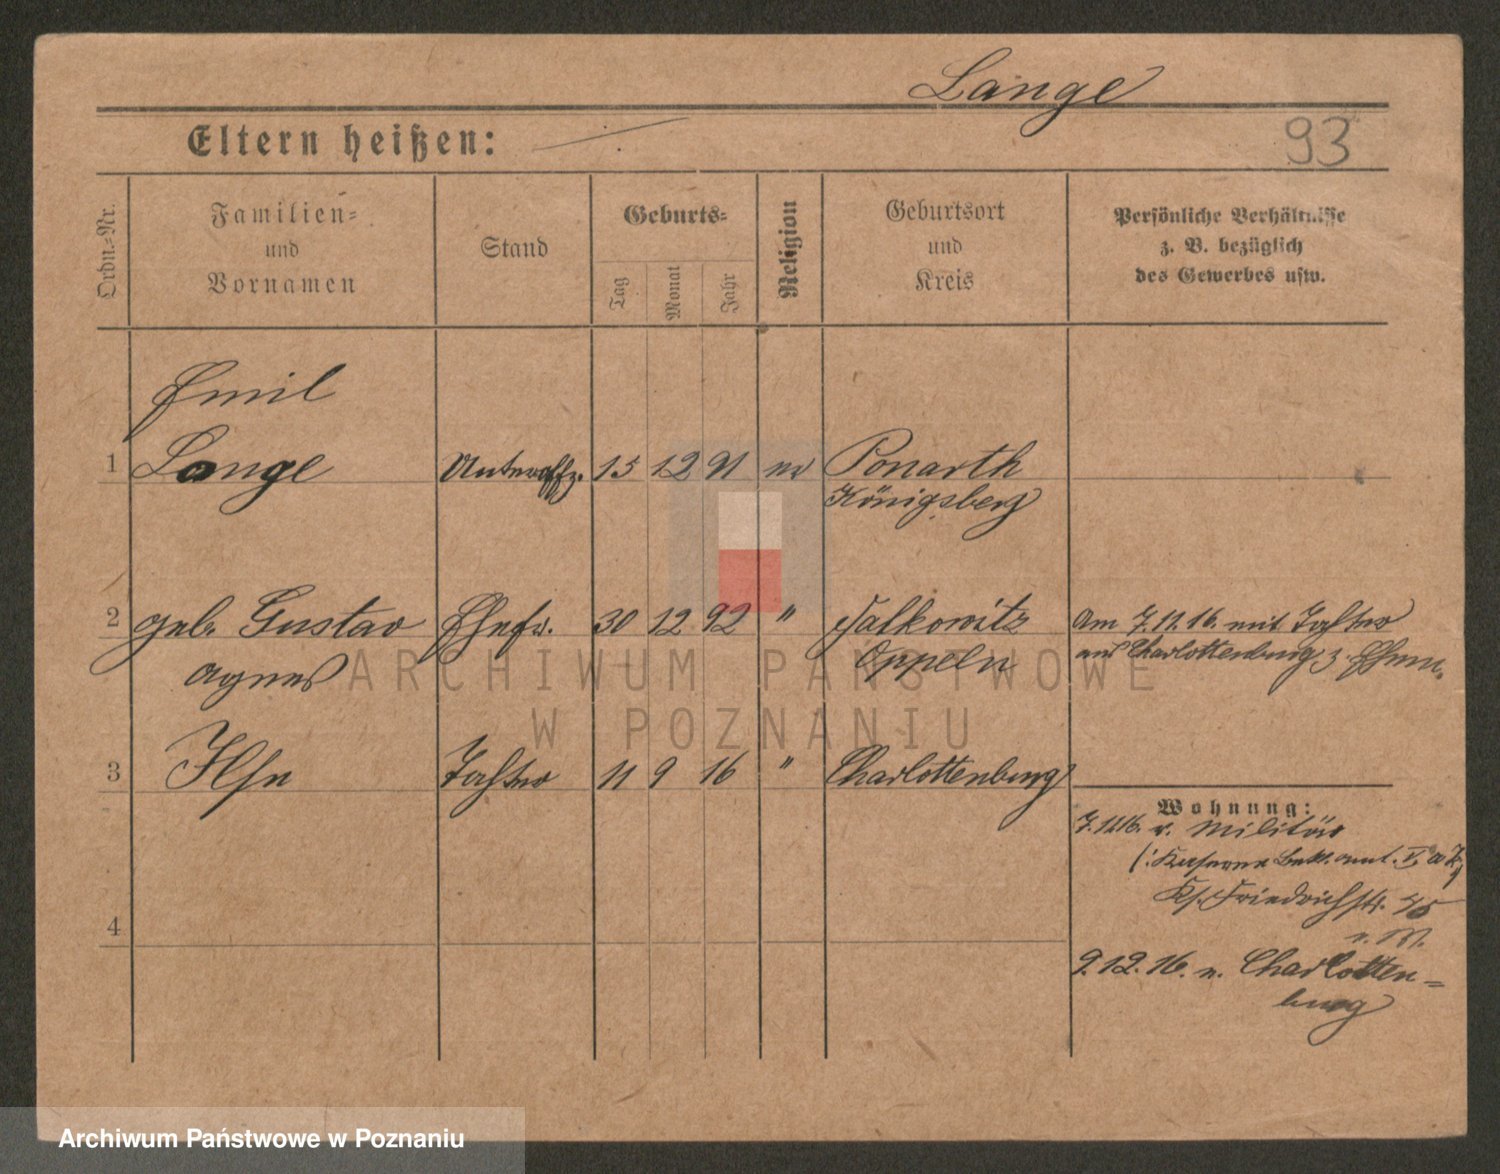 Lange
Eltern heißen:
93
Ordn.-Nr.
Familien-
und
Vornamen
Stand
Geburts-
Tag
Monat
Jahr
Religion
Geburtsort
und
Kreis
Persönliche Verhältnisse
z. B. bezüglich
des Gewerbes usw.
Emil
1 Lange Unteroffz. 15 12 91 ev Ponarth
Königsberg
2 geb. Gustav Ehefr. 30 12 92 " Falkowitz
Agnes Oppeln
Am 7.11.16. mit Tochter
aus Charlottenburg z. Ehem.
3 Ilse Tochter 11 9 16 " Charlottenburg
4
Wohnung:
7.11.16. v. Militär
(: Kaserne
Friedrichstr. 45
9.12.16. n. Charlotten-
burg
ARCHIWUM PAŃSTWOWE
W POZNANIU
Archiwum Państwowe w Poznaniu